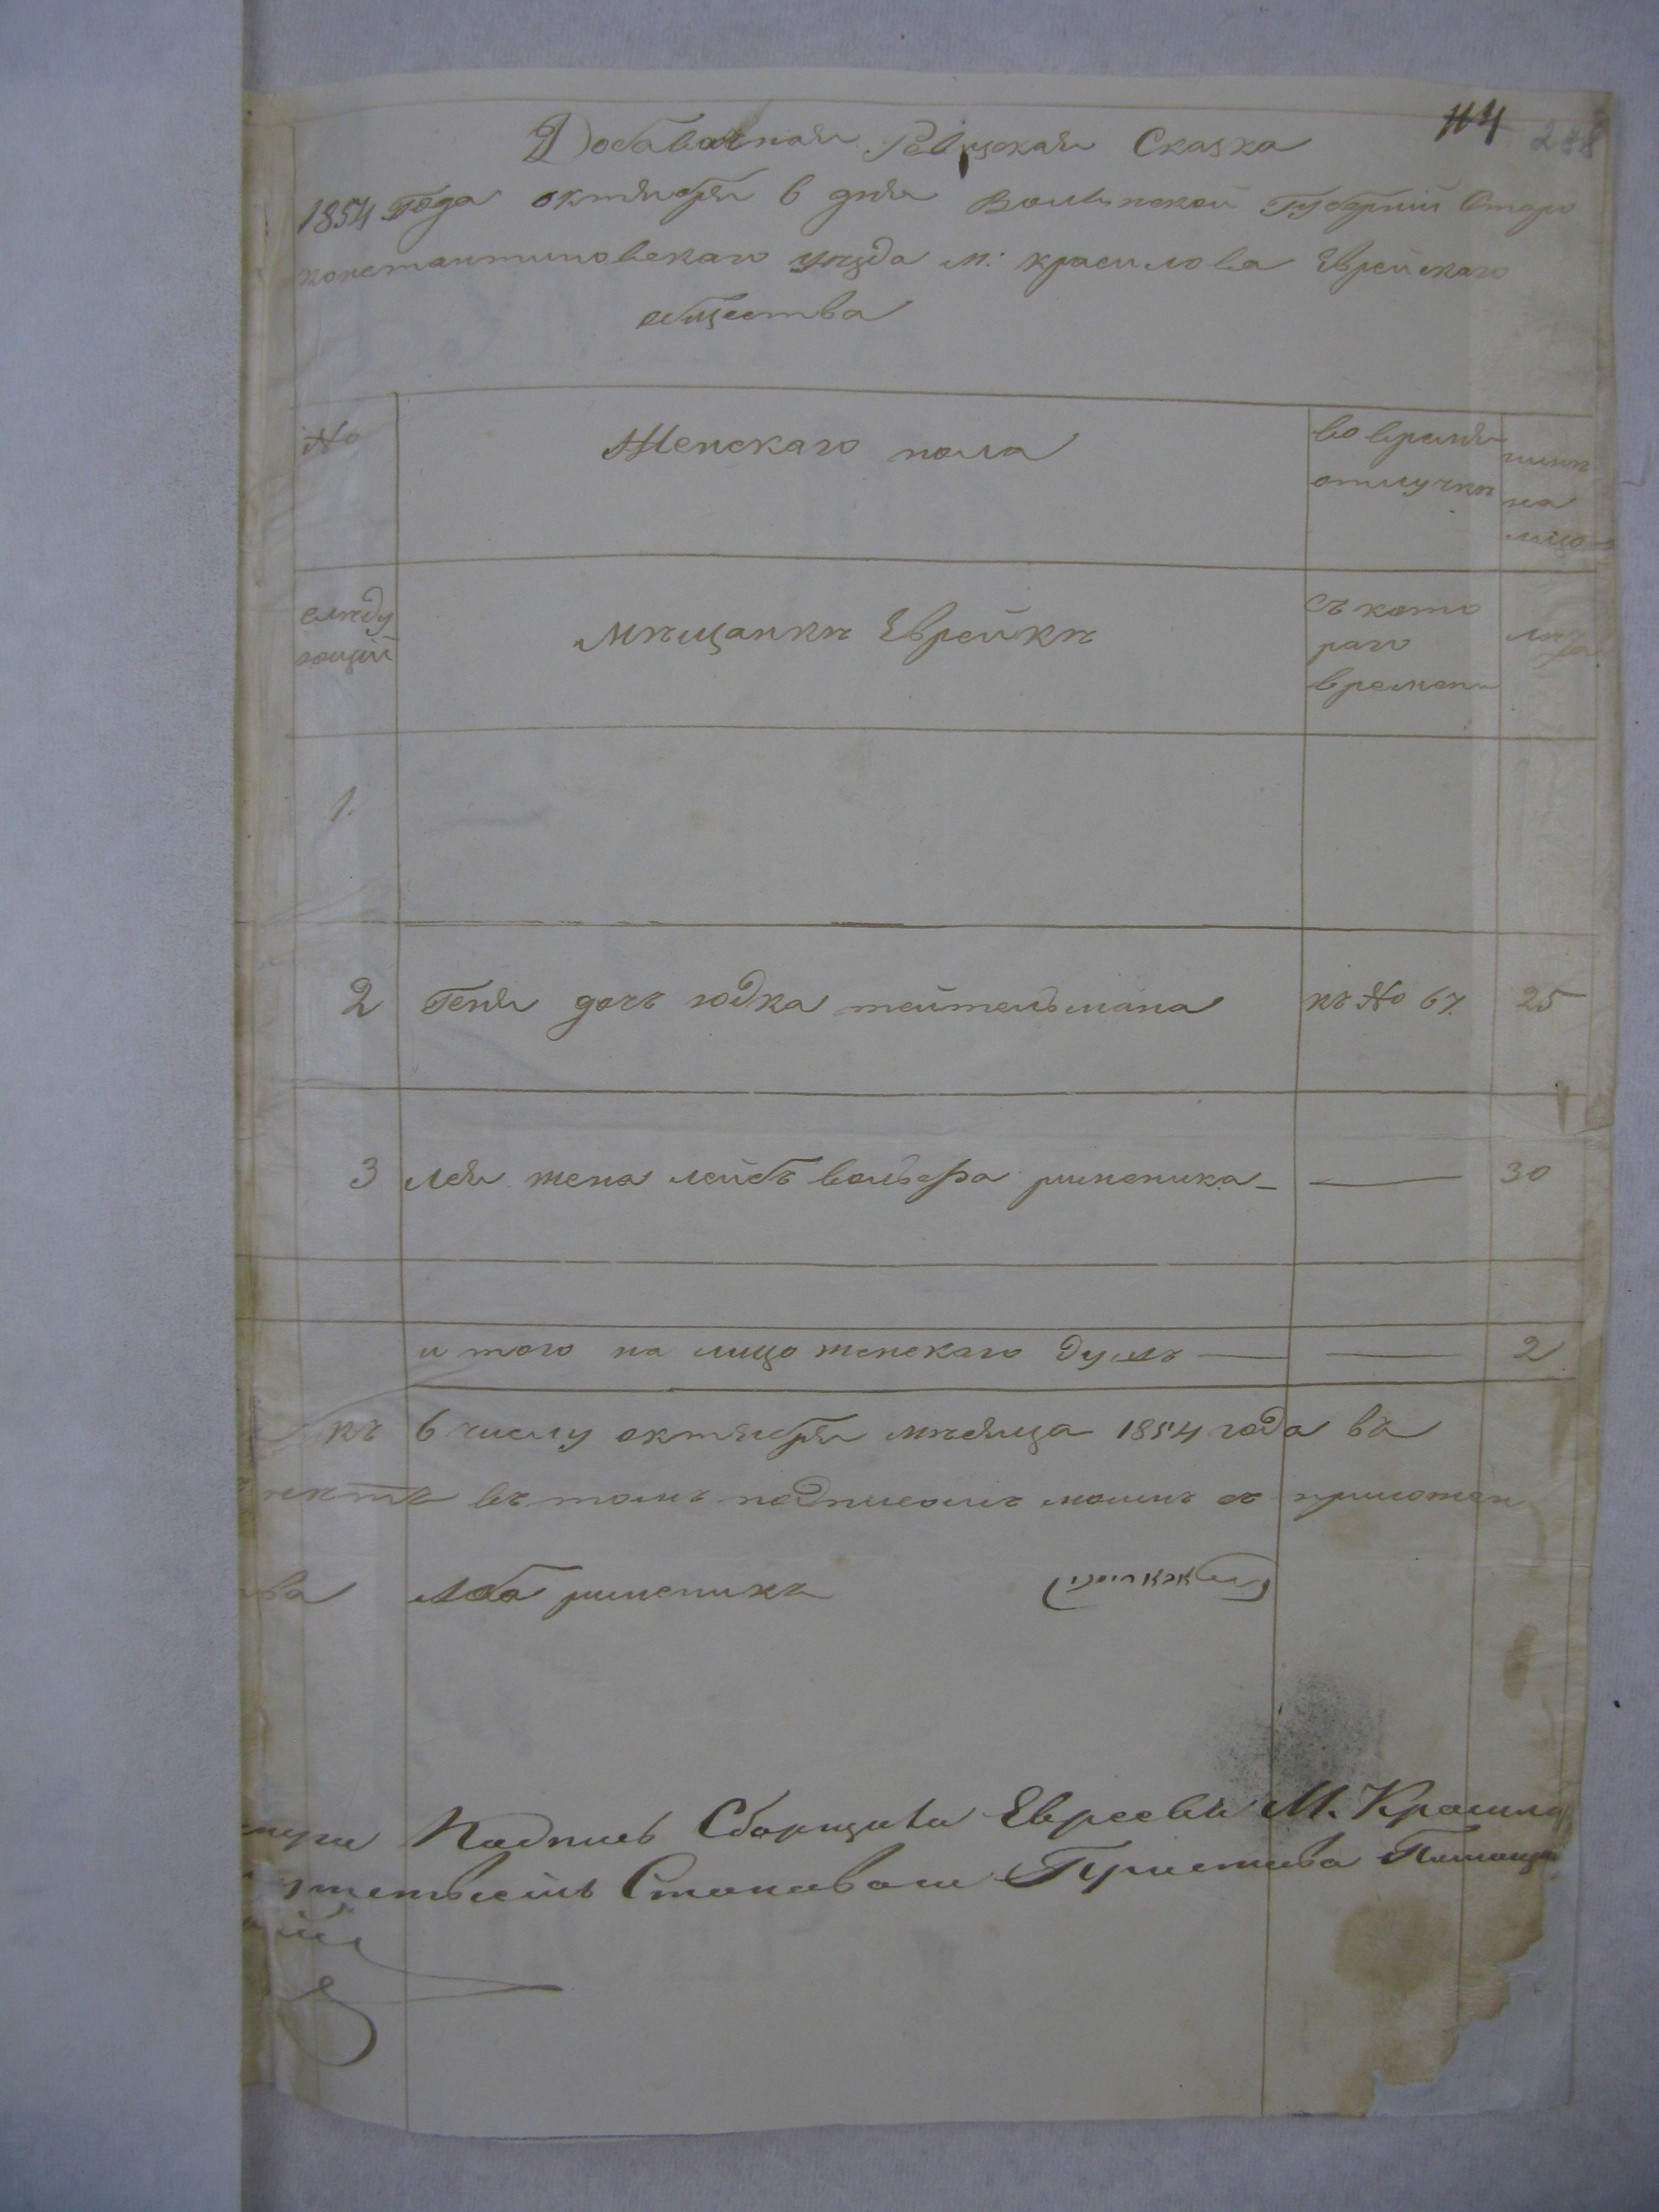 114 288
Добавочная Ревиская Сказка
1854 Года октября 6 дня Волынской Губернии Старо
константиновскаго уѣзда м: красилова Еврейскаго
общества
№ Женскаго пола во время отлучкѣ нинѣ на лицо
слѣду ющий мѣщанкѣ Еврейкѣ съ кото раго времени лѣта
1.
2 Геня дочъ юдка тейтельмана къ № 67. 25
3 лея жена лейбъ вольфа рипеника — 30
и того на лицо женскаго душъ — — 2
къ 6 числу октября мѣсяца 1854 года въ
въ томъ подписомъ моимъ съ приложен
ва рипеникъ
Подпись Сборщика Евреевъ М. Красило
Становаго Пристава